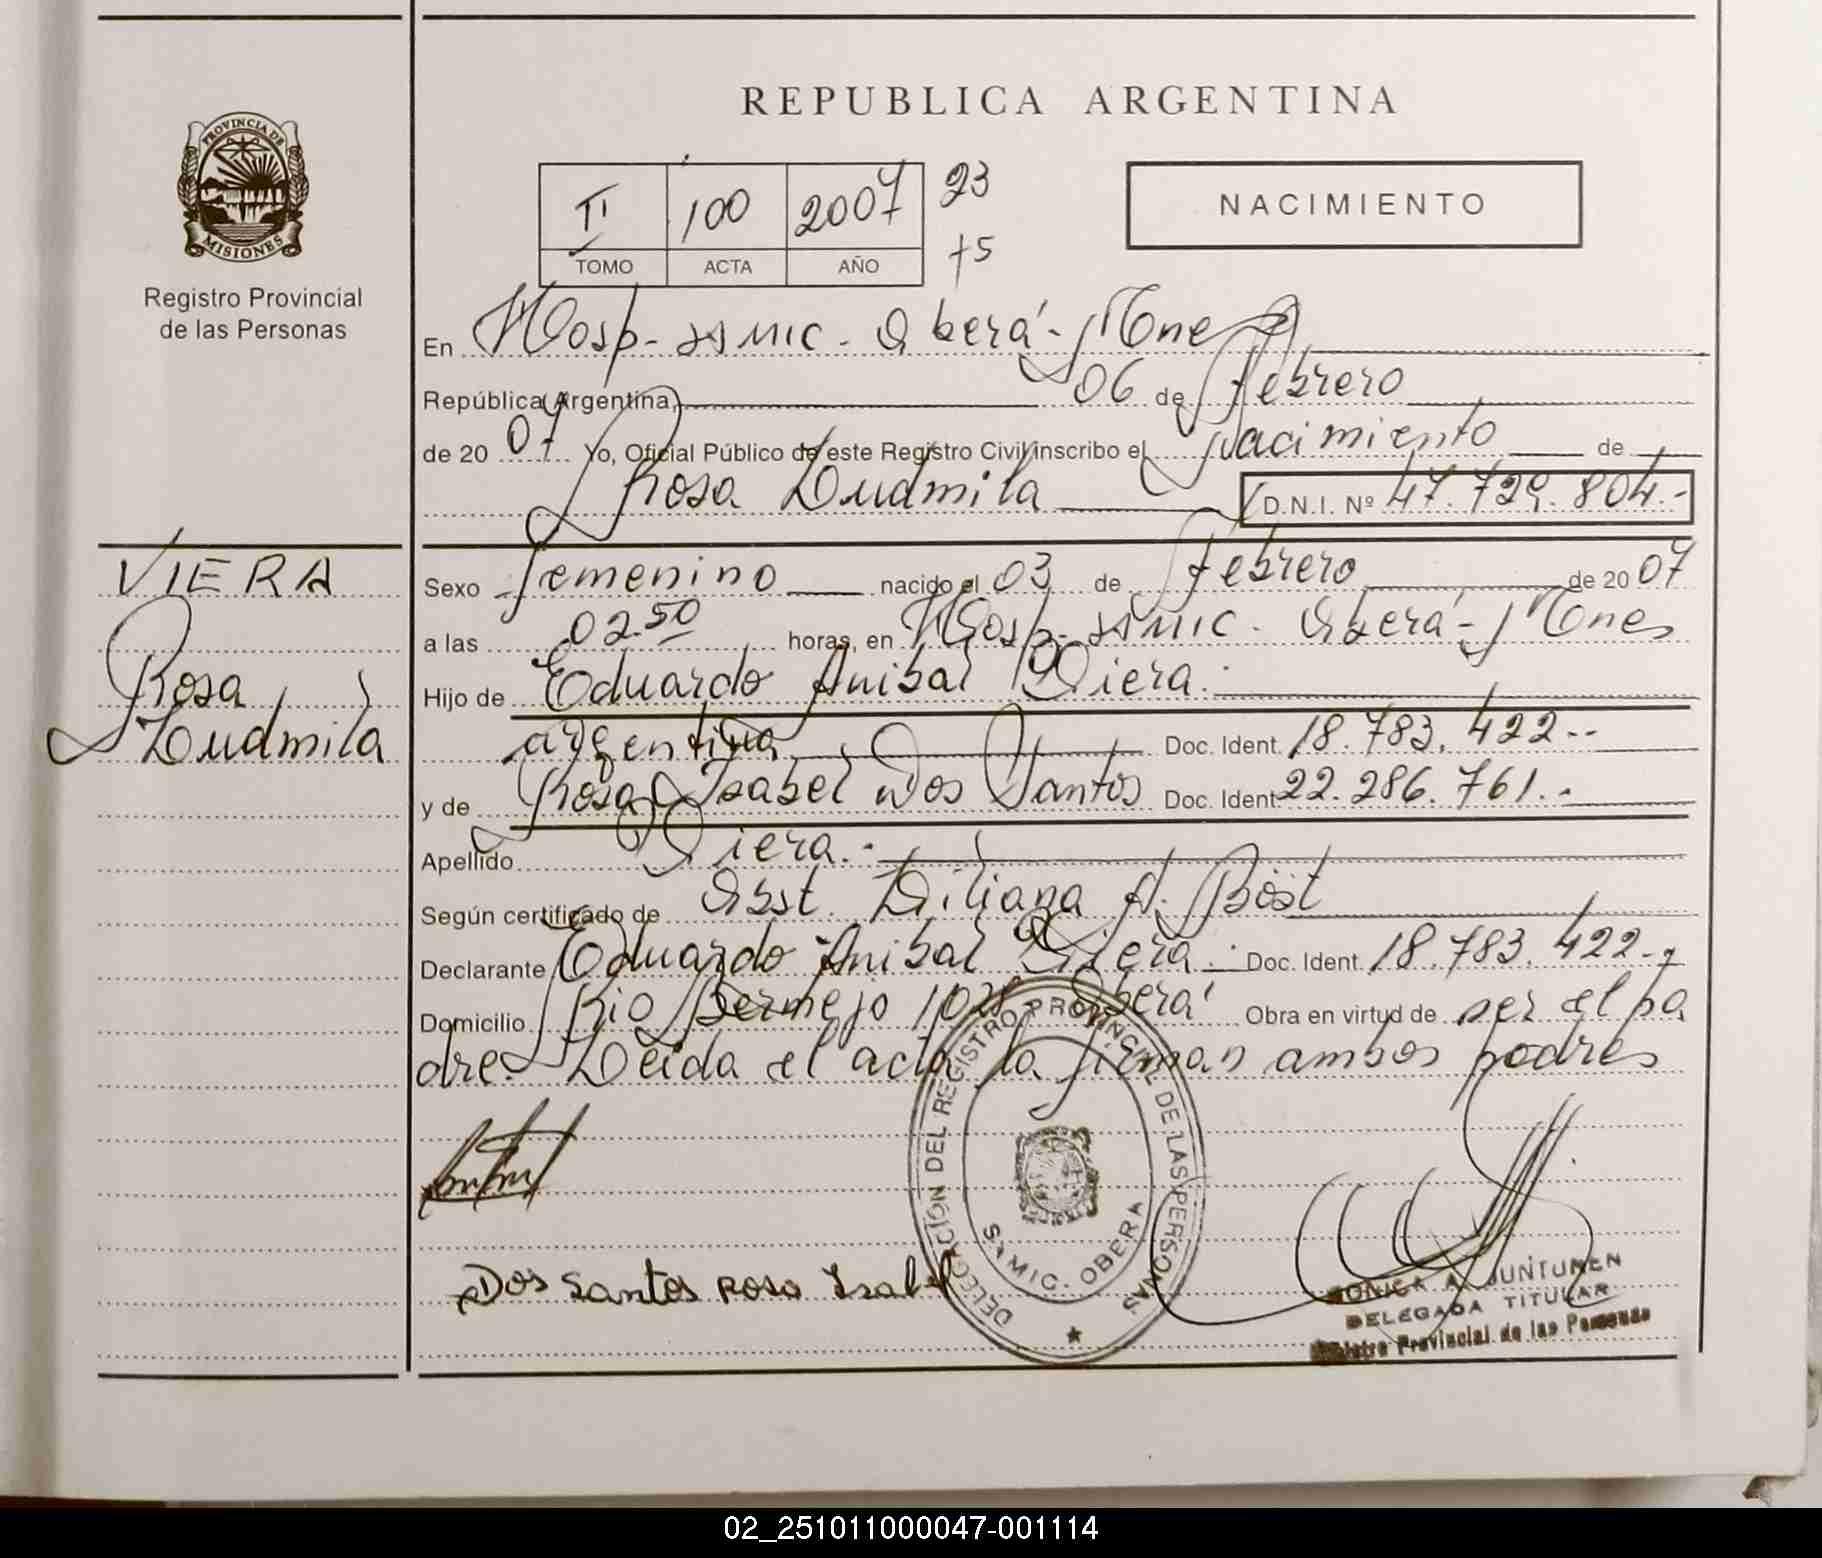 REPUBLICA ARGENTINA
PROVINCIA DE MISIONES
Registro Provincial
de las Personas
II 100 2007 23
TOMO ACTA AÑO +5
NACIMIENTO
En Hosp- SAMIC. Oberá- Mnes
República Argentina, 06 de Febrero
de 2007 Yo, Oficial Público de este Registro Civil inscribo el Nacimiento de
Rosa Ludmila D.N.I. Nº 47.729.804.-
VIERA
Rosa
Ludmila
Sexo Femenino nacido el 03 de Febrero de 2007
a las 02.50 horas, en Hosp- SAMIC. Oberá- Mnes
Hijo de Eduardo Anibal Viera.
argentina Doc. Ident. 18.783.422.-
y de Rosa Isabel Dos Santos Doc. Ident 22.286.761.-
Apellido Viera.-
Según certificado de Obst. Liliana A. Böst
Declarante Eduardo Anibal Viera.- Doc. Ident. 18.783.422.-
Domicilio Rio Bermejo 1028 Oberá Obra en virtud de ser el pa
dre. Leida el acta la firman ambos padres
DELEGACIÓN DEL REGISTRO PROVINCIAL DE LAS PERSONAS
SAMIC. OBERA
Dos Santos Rosa Isabel
MONICA A. JUNTUNEN
DELEGADA TITULAR
Registro Provincial de las Personas
02_251011000047-001114